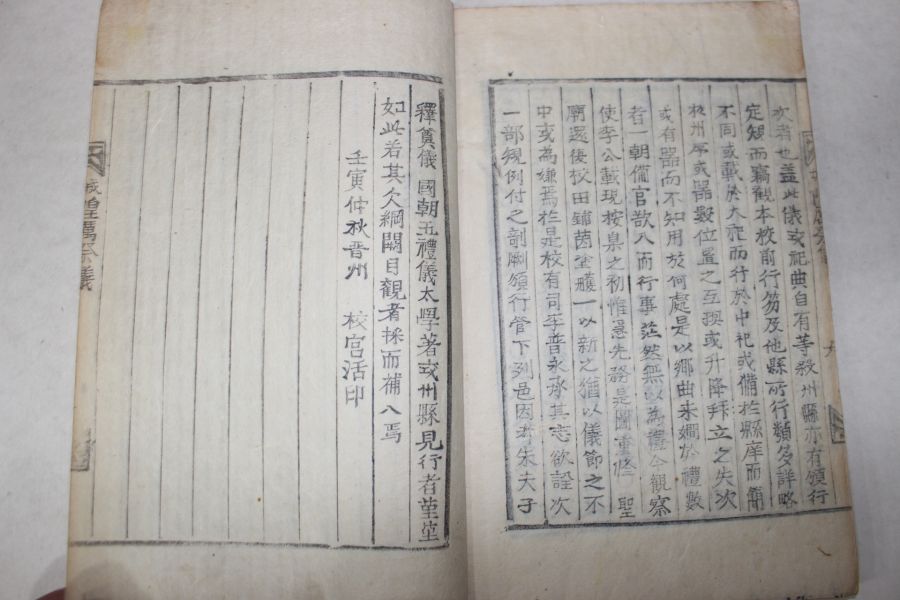 次者也盖此儀或祀典自有等殺州縣亦有頒行
定規而竊觀本校前行笏及他縣所行頻多詳略
不同或載於大祀而行於中祀或備於縣庠而備
於州序或器數位置之互換或升降拜立之失次
或有器而不知用於何處是以鄉曲未嫺於禮數
者一朝備官欲入而行事茫然無以為禮今觀察
使李公載現按臬之初惟急先務是圖重修 聖
廟還後校田鋪茵塗雘一以新之猶以儀節之不
中或為嫌焉於是校有司李普永承其志欲詮次
一部規例付之剞劂頒行管下列邑因考朱夫子
釋奠儀 國朝五禮儀太學著或州縣見行者堇堇
如此若其欠綱闕目觀者採而補入焉
壬寅仲秋晋州 校宮活印
厲祭儀